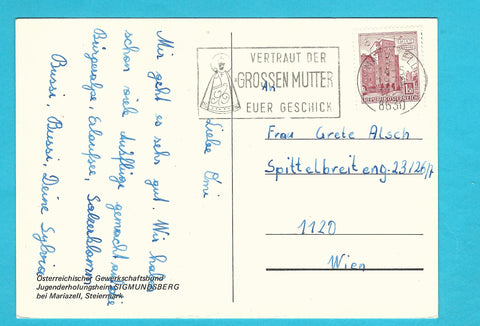 Liebe Omi
Mir geht es sehr gut. Wir haben
schon viele Ausflüge gemacht auf die
Bürgeralpe, Erlaufsee, Salzaklamm
Bussi, Bussi, Deine Sylvia
Österreichischer Gewerkschaftsbund
Jugenderholungsheim SIGMUNDSBERG
bei Mariazell, Steiermark
VERTRAUT DER
GROSSEN MUTTER
EUER GESCHICK
8630
REPUBLIK ÖSTERREICH
An
Frau Grete Alsch
Spittelbreiteng. 23/26/7
1120
Wien